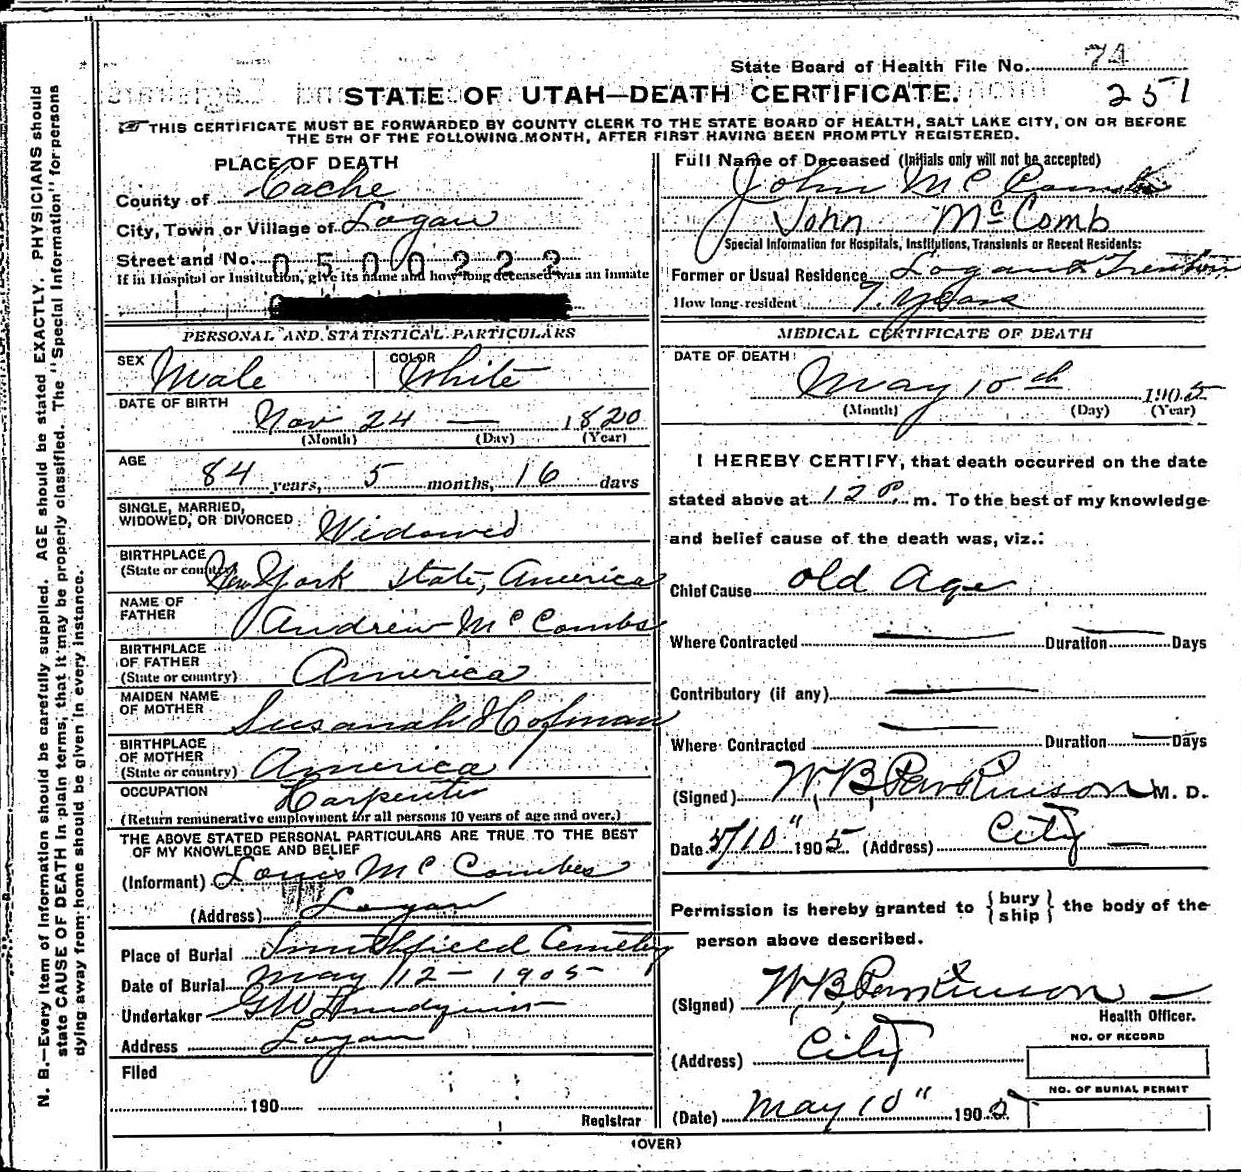 State Board of Health File No. 74
STATE OF UTAH—DEATH CERTIFICATE.
251
THIS CERTIFICATE MUST BE FORWARDED BY COUNTY CLERK TO THE STATE BOARD OF HEALTH, SALT LAKE CITY, ON OR BEFORE
THE 5TH OF THE FOLLOWING MONTH, AFTER FIRST HAVING BEEN PROMPTLY REGISTERED.
N. B.—Every item of information should be carefully supplied. AGE should be stated EXACTLY. PHYSICIANS should
state CAUSE OF DEATH in plain terms, that it may be properly classified. The "Special Information" for persons
dying away from home should be given in every instance.
PLACE OF DEATH
County of Cache
City, Town or Village of Logan
Street and No. 0500222
If in Hospital or Institution, give its name and how long deceased was an inmate
PERSONAL AND STATISTICAL PARTICULARS
SEX Male COLOR White
DATE OF BIRTH Nov 24 — 1820
(Month) (Day) (Year)
AGE 84 years, 5 months, 16 days
SINGLE, MARRIED,
WIDOWED, OR DIVORCED Widowed
BIRTHPLACE
(State or country) New York State, America
NAME OF
FATHER Andrew Mc Combs
BIRTHPLACE
OF FATHER
(State or country) America
MAIDEN NAME
OF MOTHER Susanah Hofman
BIRTHPLACE
OF MOTHER
(State or country) America
OCCUPATION Carpenter
(Return remunerative employment for all persons 10 years of age and over.)
THE ABOVE STATED PERSONAL PARTICULARS ARE TRUE TO THE BEST
OF MY KNOWLEDGE AND BELIEF
(Informant) Louis Mc Combes
(Address) Logan
Place of Burial Smithfield Cemetery
Date of Burial May 12 - 1905-
Undertaker GW
Address Logan
Filed
190
Registrar
Full Name of Deceased (Initials only will not be accepted)
John Mc
John McComb
Special Information for Hospitals, Institutions, Transients or Recent Residents:
Former or Usual Residence Logan & Trenton
How long resident 7. years
MEDICAL CERTIFICATE OF DEATH
DATE OF DEATH May 10th 1905
(Month) (Day) (Year)
I HEREBY CERTIFY, that death occurred on the date
stated above at 12 P. m. To the best of my knowledge
and belief cause of the death was, viz.:
Chief Cause old age
Where Contracted — Duration — Days
Contributory (if any) —
Where Contracted — Duration — Days
(Signed) W.B. Parkinson M. D.
Date 5/10" 1905 (Address) City —
Permission is hereby granted to { bury ship } the body of the
person above described.
(Signed) W.B. Parkinson —
Health Officer.
(Address) City
NO. OF RECORD
NO. OF BURIAL PERMIT
(Date) May 10" 1905
(OVER)